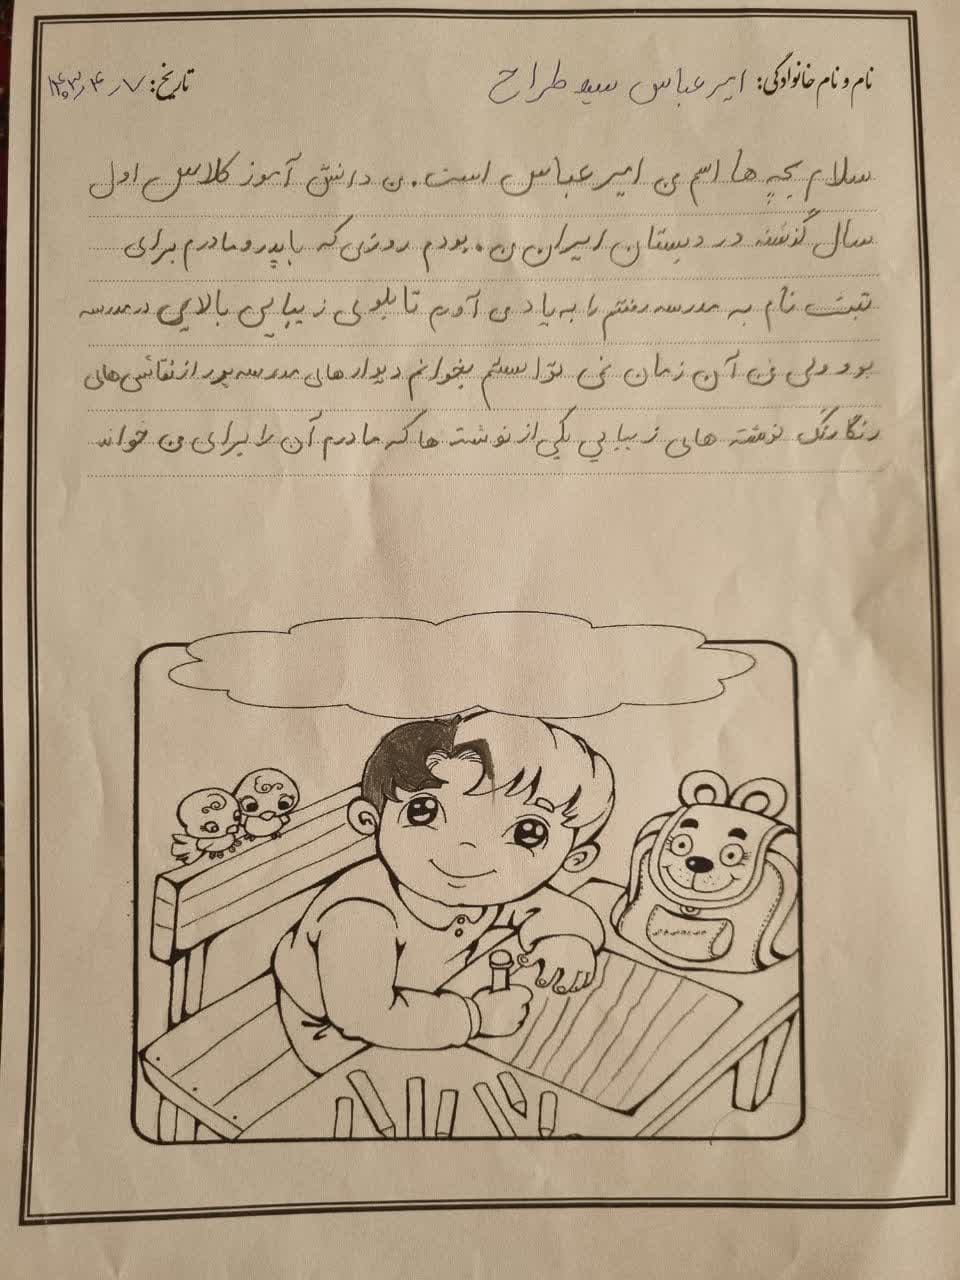 نام و نام خانوادگی: امیر عباس سید طراح
تاریخ: ۷ ر ۴ ر ۱۴۰۳
سلام بچه ها اسم من امیر عباس است. من دانش آموز کلاس اول
سال گذشته در دبستان ایران من. بودم روزی که با پدر و مادرم برای
ثبت نام به مدرسه رفتم را به یاد می آورم تابلوی زیبایی بالایی در مدرسه
بود ولی من آن زمان نمی توانستم بخوانم دیوار های مدرسه پور از نقاشی های
رنگارنگ نوشته های زیبایی یکی از نوشته ها که مادرم آن را برای من خواند